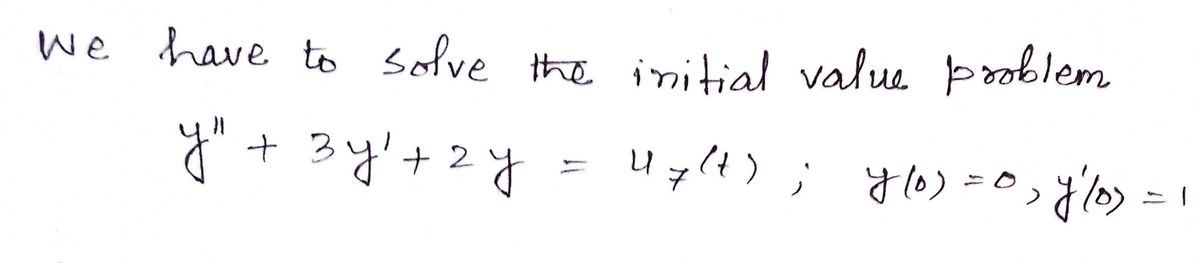 We have to solve the initial value problem
y'' + 3y' + 2y = u₇(t) ; y(0) = 0, y'(0) = 1